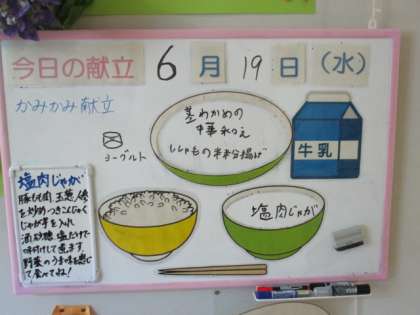 今日の献立 6月19日(水)
かみかみ献立
茎わかめの
中華和え
ししゃもの米粉揚げ
ヨーグルト
牛乳
塩肉じゃが
塩肉じゃが
豚もも肉、玉葱、人参
を炒め、つきこんにゃく
じゃが芋を入れ
酒、砂糖、塩だけで
味付けして煮ます。
野菜のうま味を感じ
て食べてね!